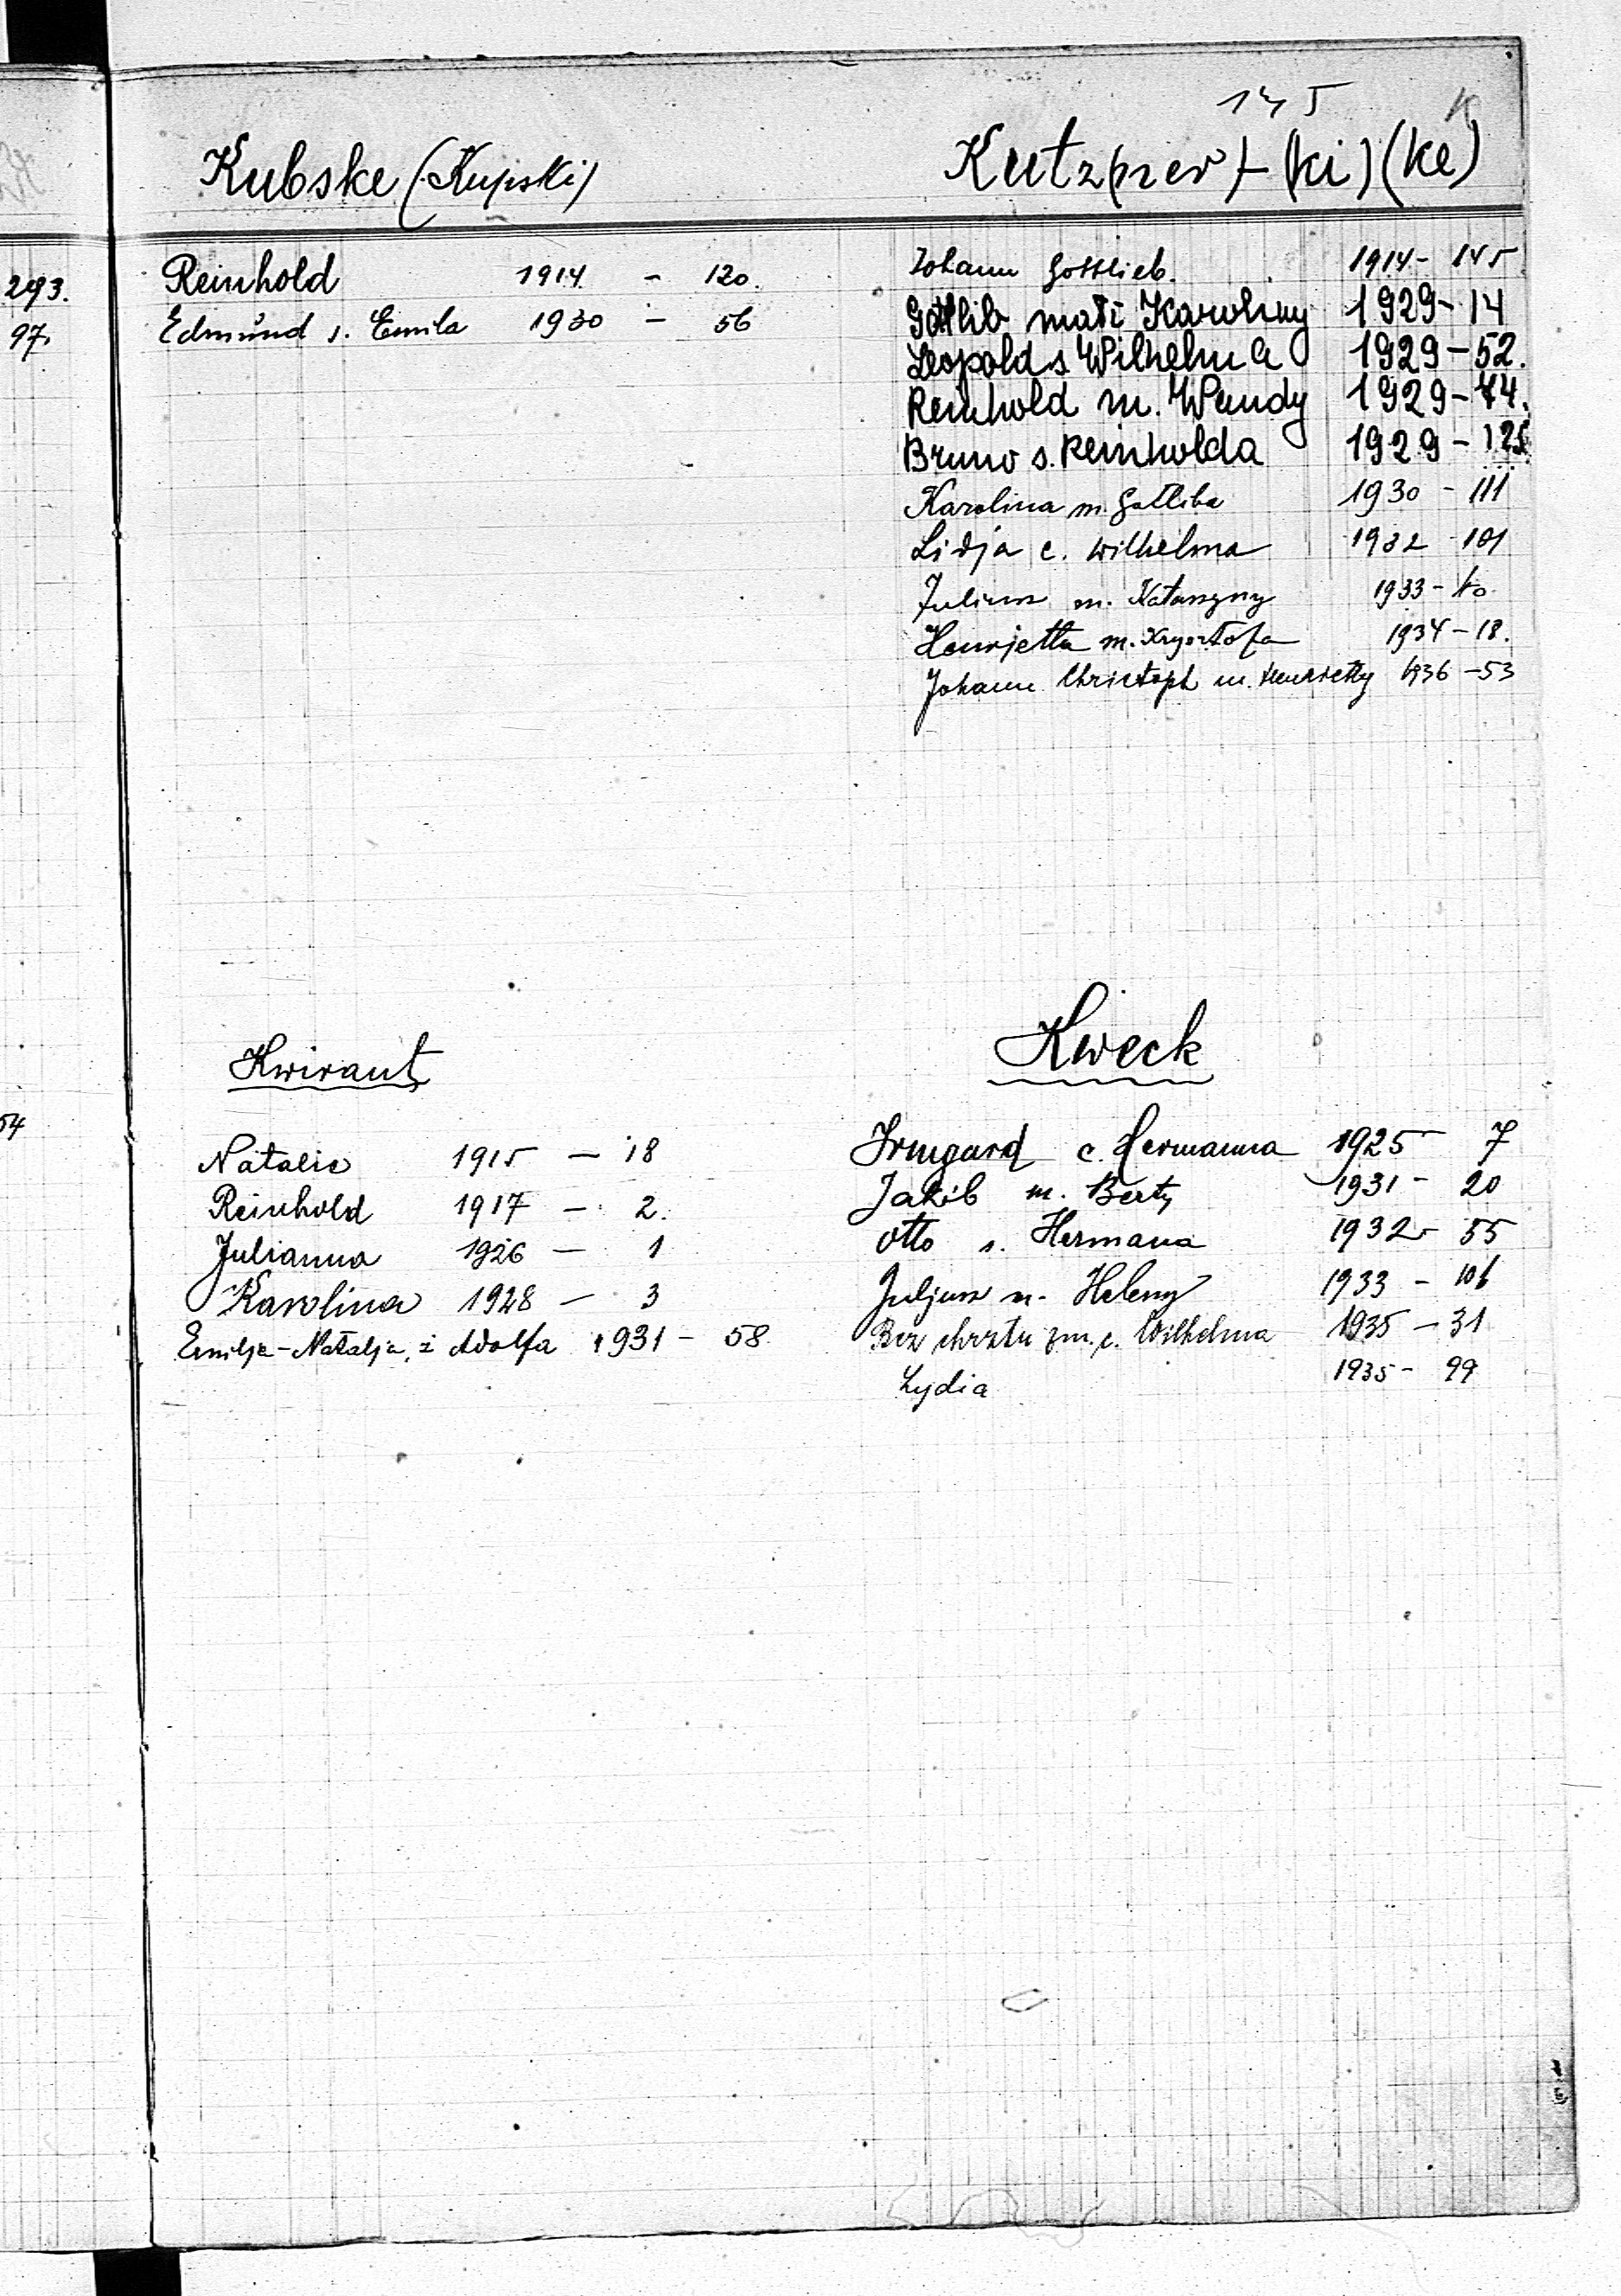 145 K
Kubske (Kupski)
Reinhold 1914 - 120.
Edmund s. Emila 1930 - 56
Kutz(ner) - (ki) (ke)
Johann Gottlieb. 1914 - 145
Gottlib mąż Karoliny 1929 - 14
Leopold s. Wilhelma 1929 - 52.
Reinhold m. Wandy 1929 - 44.
Bruno s. Reinholda 1929 - 125
Karolina m. Gotliba 1930 - 111
Lidja c. Wilhelma 1932 101
Juljusz m. Katarzyny 1933 -
Henrjetta m. Krysztofa 1934 - 18.
Johann Christoph m. Henrietty 1936 - 53
293.
97.
54
Kwirant
Natalie 1915 - 18
Reinhold 1917 - 2.
Julianna 1926 - 1
Karolina 1928 - 3
Emilja-Natalja, ż Adolfa 1931 - 58
Kweck
Irmgard c. Hermanna 1925 7
Jakób m. Berty 1931 - 20
Otto s. Hermana 1932 - 55
Juljusz m. Heleny 1933 -
Bez chrztu zm. c. Wilhelma 1935 - 31
Lydia 1935 - 99